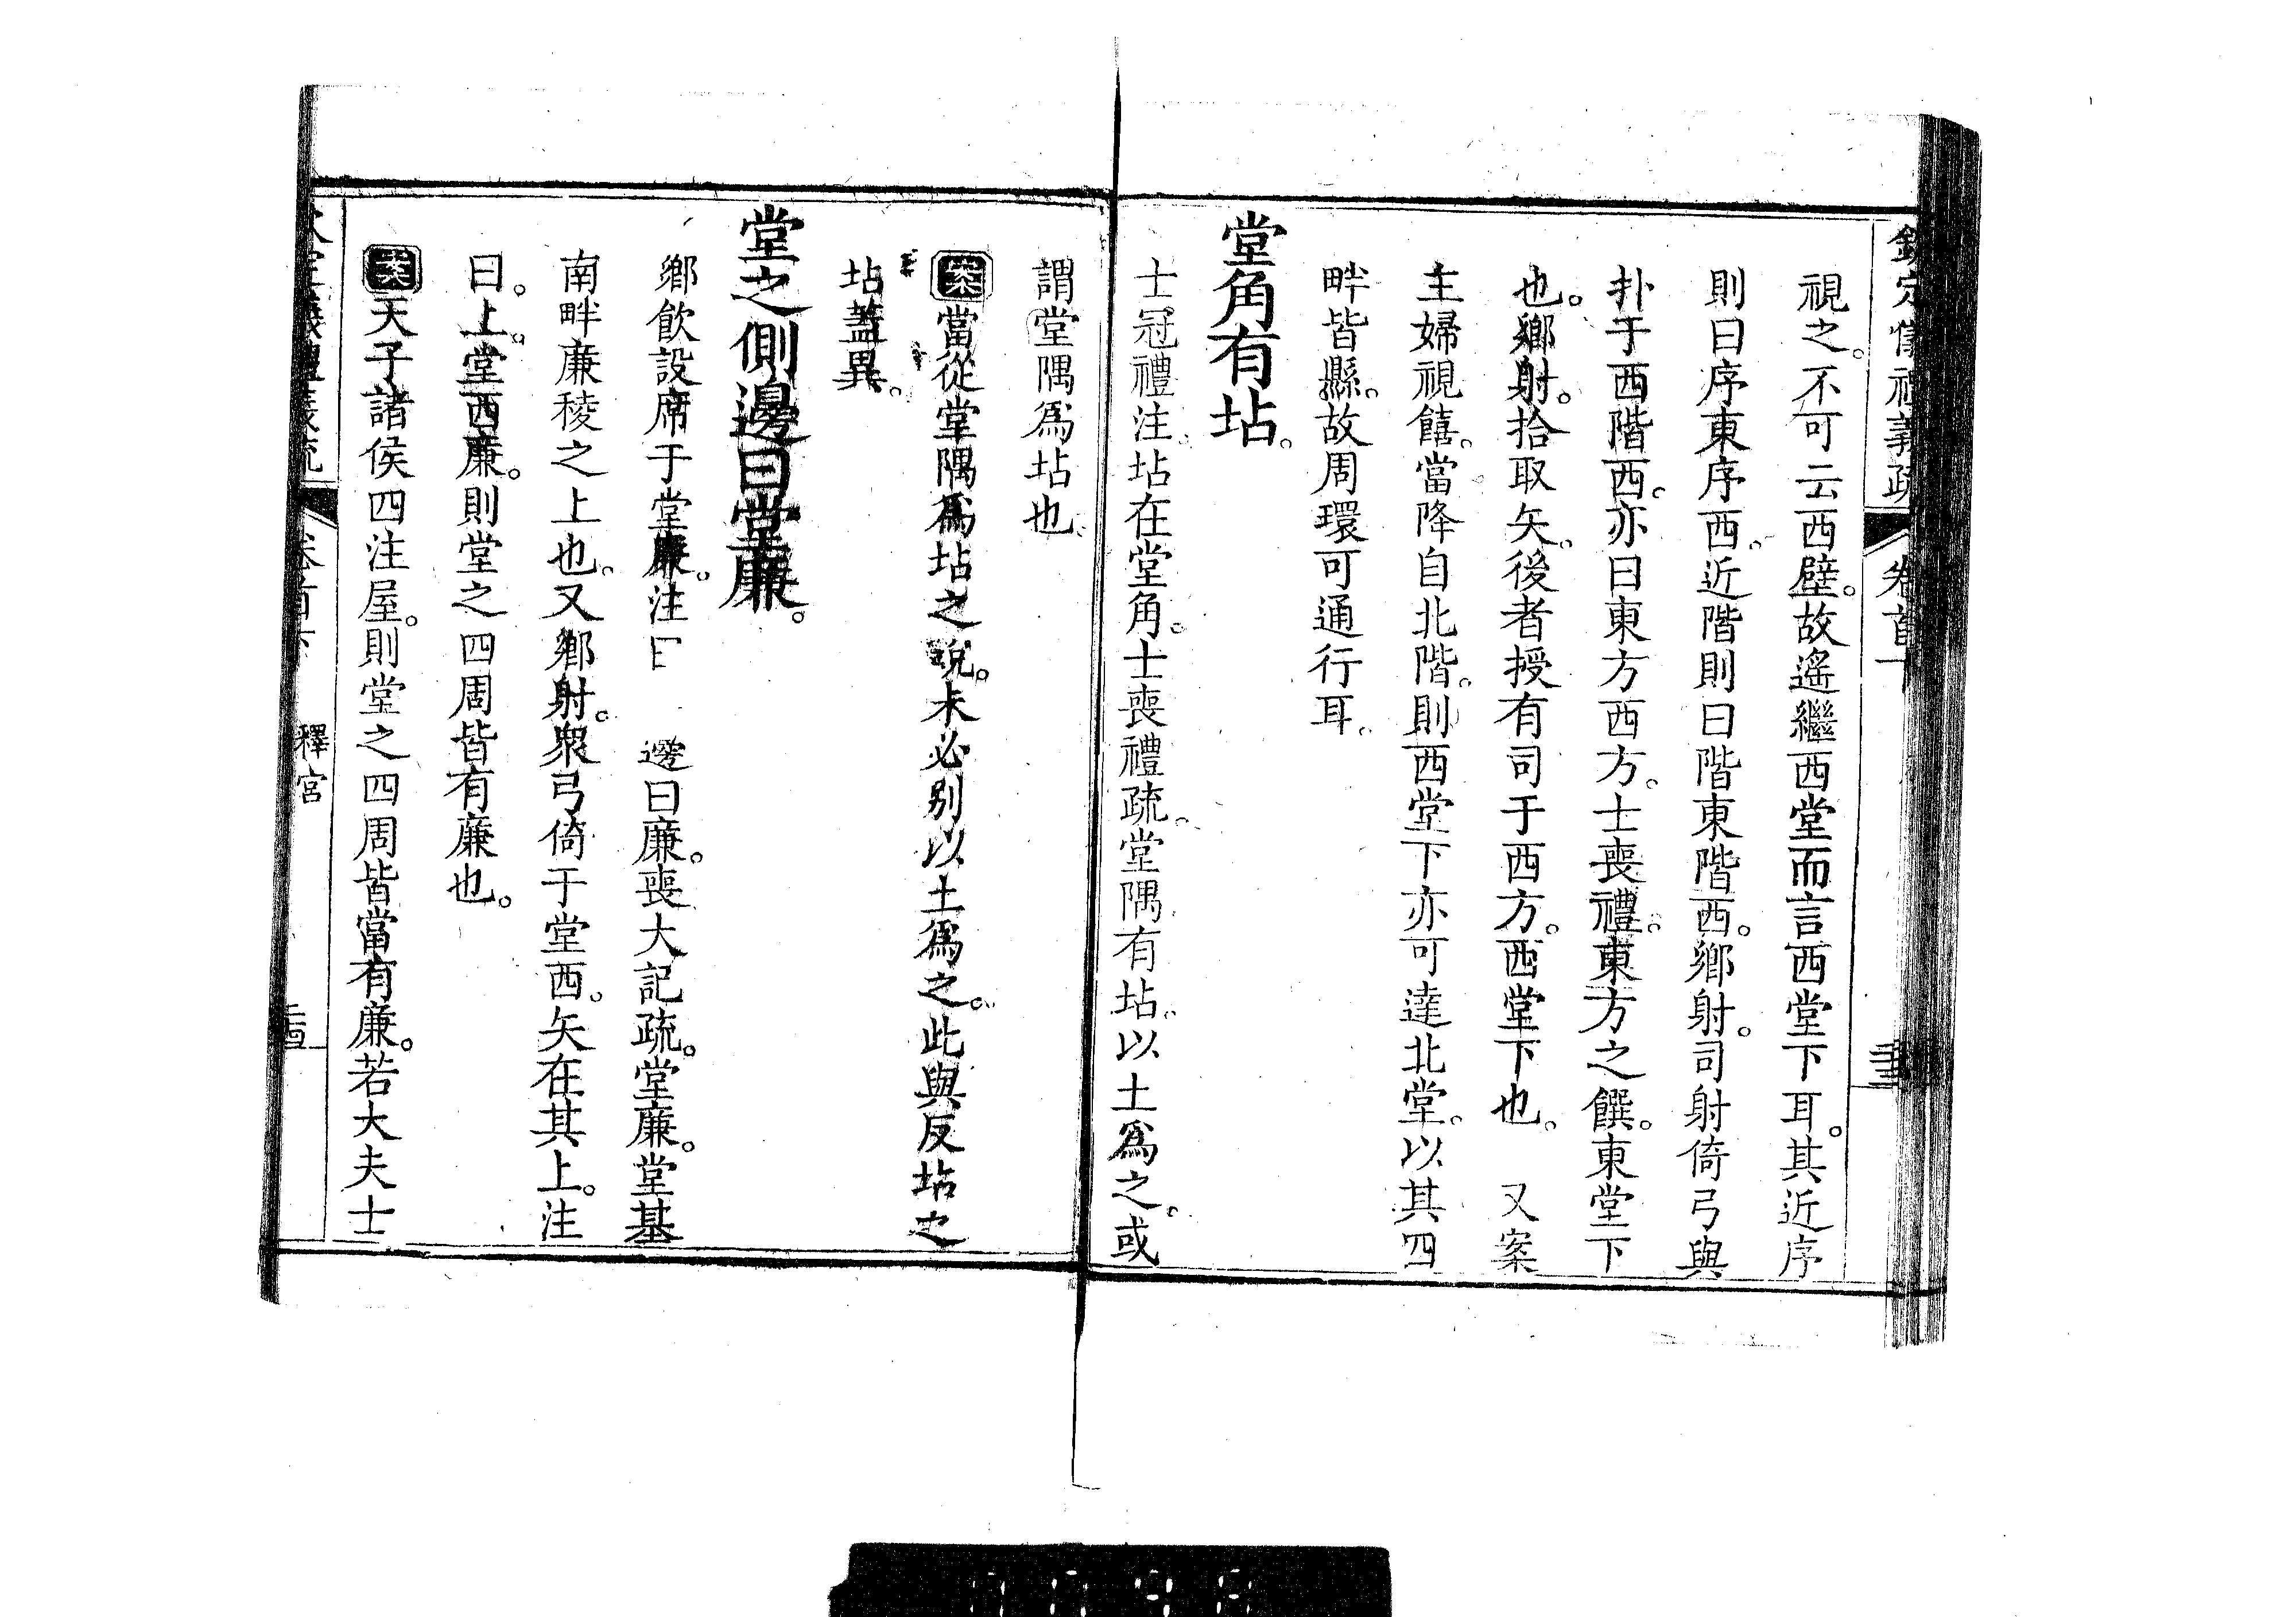 欽定儀禮義疏 卷首下
視之。不可云西壁。故遙繼西堂而言西堂下耳。其近序
則曰序東序西。近階則曰階東階西。鄉射。司射倚弓與
扑于西階西。亦曰東方西方。士喪禮。東方之饌。東堂下
也。鄉射。拾取矢。後者授有司于西方。西堂下也。 又案
主婦視饎。當降自北階。則西堂下亦可達北堂。以其四
畔皆縣。故周環可通行耳。
堂角有坫。
士冠禮注。坫在堂角。士喪禮疏。堂隅有坫。以土爲之。或
謂堂隅爲坫也
案當從堂隅爲坫之說。未必別以土爲之。此與反坫之
坫蓋異。
堂之側邊曰堂廉。
鄉飲設席于堂廉。注 邊曰廉。喪大記疏。堂廉。堂基
南畔廉稜之上也。又鄉射。衆弓倚于堂西。矢在其上。注
曰。上。堂西廉。則堂之四周皆有廉也。
案天子諸侯四注屋。則堂之四周皆當有廉。若大夫士
釋宮